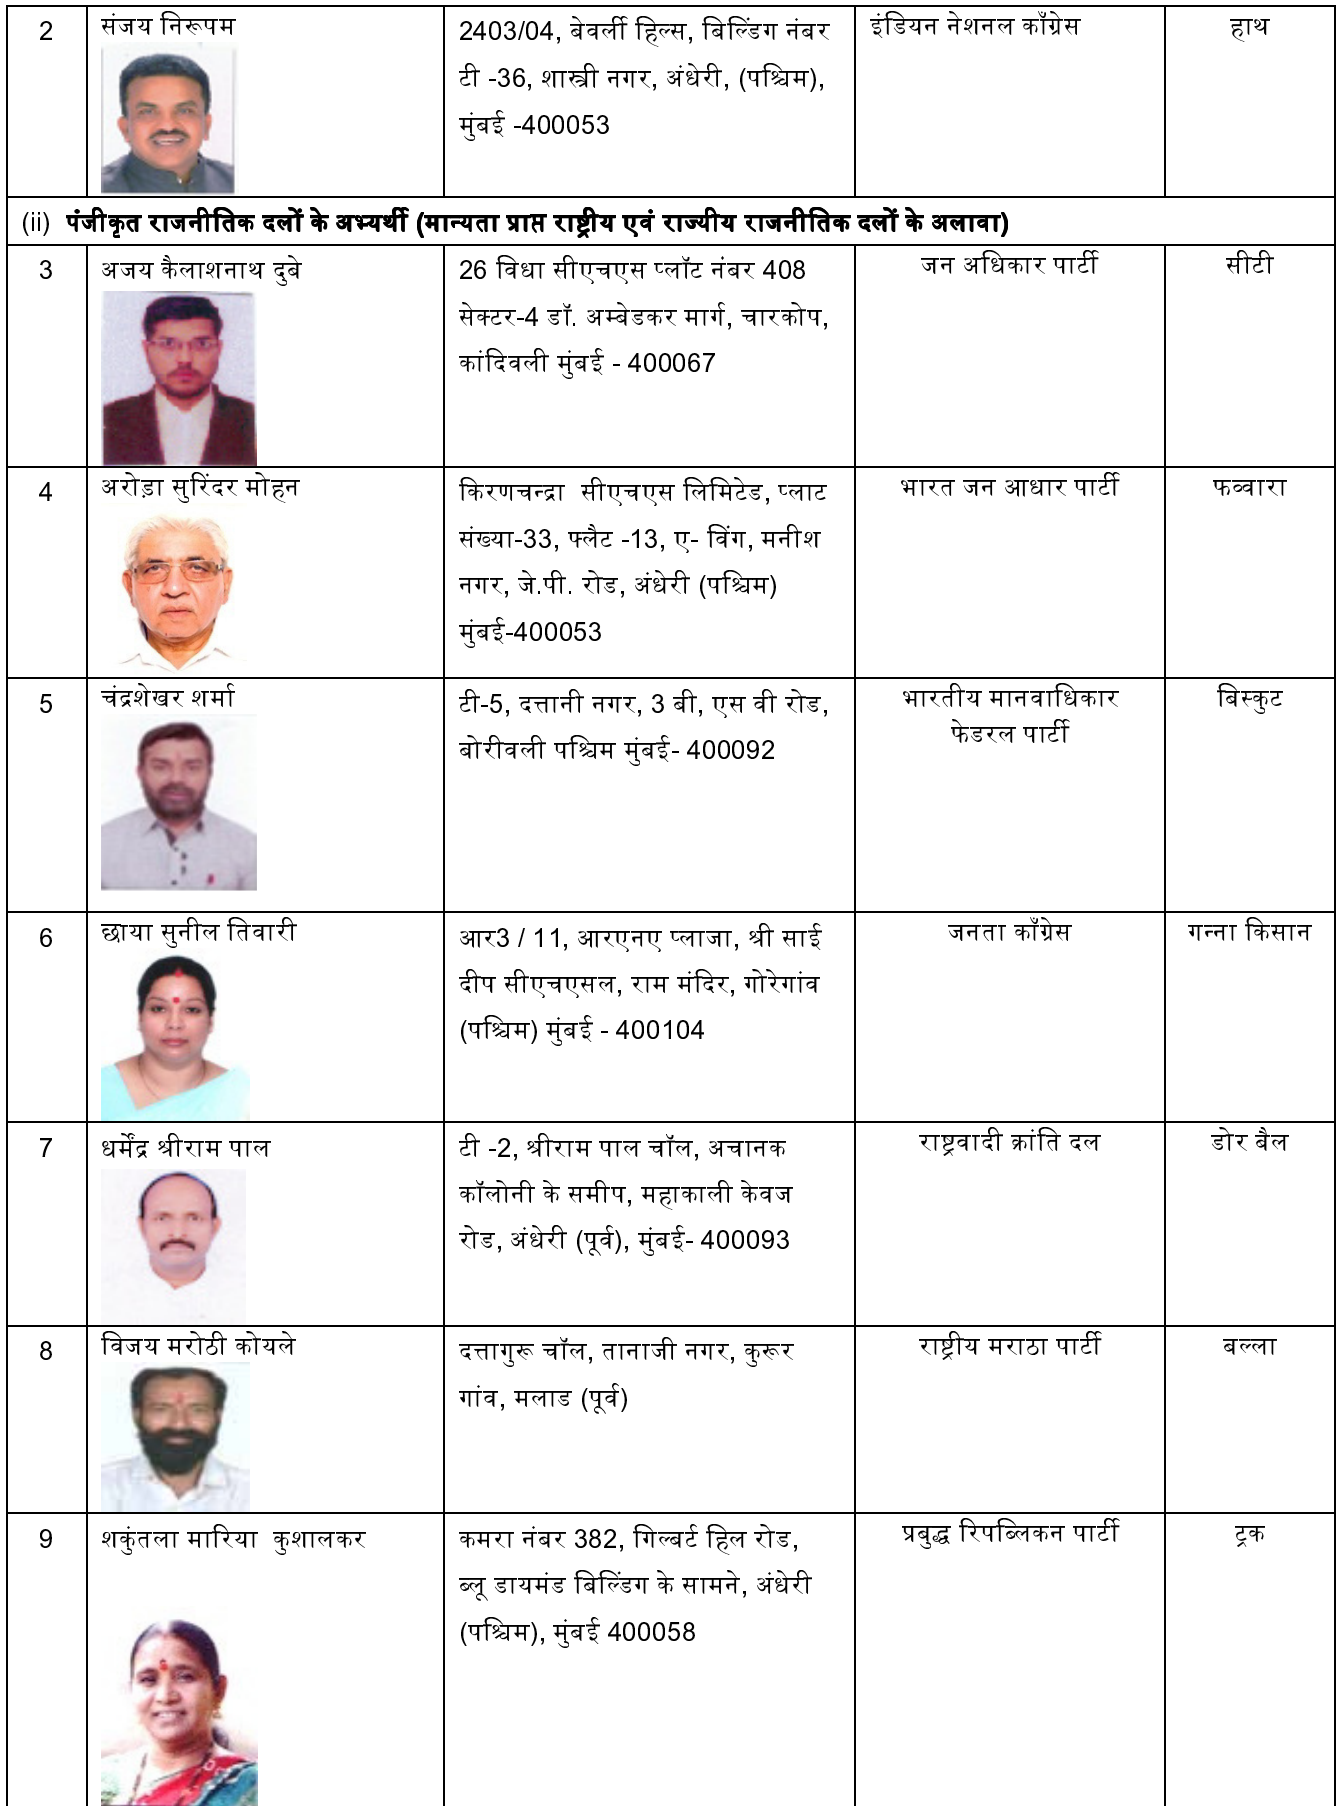 2
संजय निरूपम
2403/04, बेवर्ली हिल्स, बिल्डिंग नंबर
टी -36, शास्त्री नगर, अंधेरी, (पश्चिम),
मुंबई -400053
इंडियन नेशनल कॉंग्रेस
हाथ
(ii) पंजीकृत राजनीतिक दलों के अभ्यर्थी (मान्यता प्राप्त राष्ट्रीय एवं राज्यीय राजनीतिक दलों के अलावा)
3
अजय कैलाशनाथ दुबे
26 विधा सीएचएस प्लॉट नंबर 408
सेक्टर-4 डॉ. अम्बेडकर मार्ग, चारकोप,
कांदिवली मुंबई - 400067
जन अधिकार पार्टी
सीटी
4
अरोड़ा सुरिंदर मोहन
किरणचन्द्रा सीएचएस लिमिटेड, प्लाट
संख्या-33, फ्लैट -13, ए- विंग, मनीश
नगर, जे.पी. रोड, अंधेरी (पश्चिम)
मुंबई-400053
भारत जन आधार पार्टी
फव्वारा
5
चंद्रशेखर शर्मा
टी-5, दत्तानी नगर, 3 बी, एस वी रोड,
बोरीवली पश्चिम मुंबई- 400092
भारतीय मानवाधिकार
फेडरल पार्टी
बिस्कुट
6
छाया सुनील तिवारी
आर3 / 11, आरएनए प्लाजा, श्री साई
दीप सीएचएसल, राम मंदिर, गोरेगांव
(पश्चिम) मुंबई - 400104
जनता कॉंग्रेस
गन्ना किसान
7
धर्मेंद्र श्रीराम पाल
टी -2, श्रीराम पाल चॉल, अचानक
कॉलोनी के समीप, महाकाली केवज
रोड, अंधेरी (पूर्व), मुंबई- 400093
राष्ट्रवादी क्रांति दल
डोर बैल
8
विजय मरोठी कोयले
दत्तागुरू चॉल, तानाजी नगर, कुरूर
गांव, मलाड (पूर्व)
राष्ट्रीय मराठा पार्टी
बल्ला
9
शकुंतला मारिया कुशालकर
कमरा नंबर 382, गिल्बर्ट हिल रोड,
ब्लू डायमंड बिल्डिंग के सामने, अंधेरी
(पश्चिम), मुंबई 400058
प्रबुद्ध रिपब्लिकन पार्टी
ट्रक